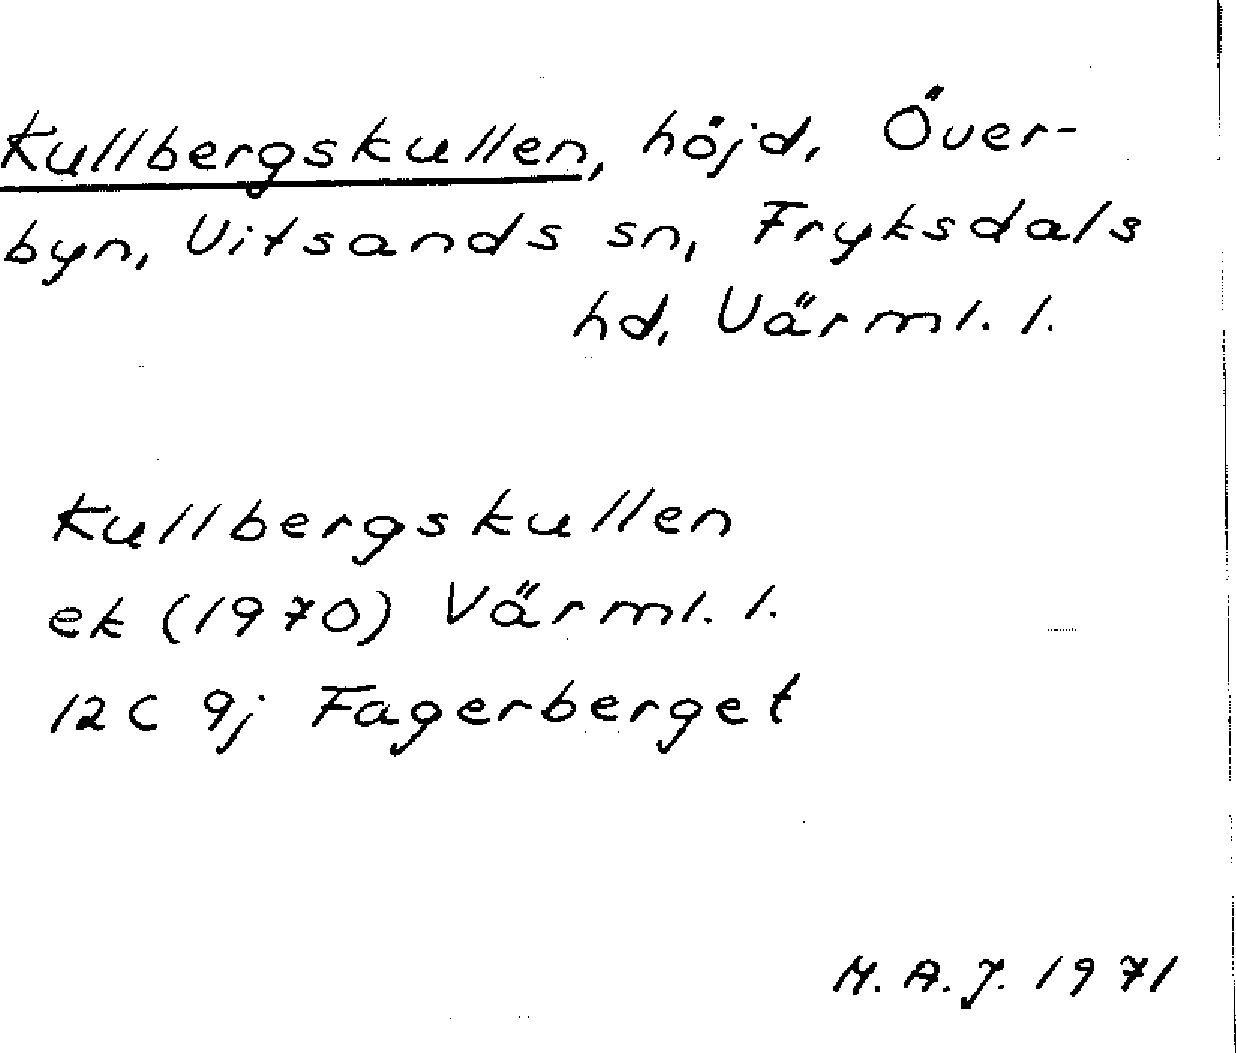 Kullbergskullen, höjd, Över-
byn, Vitsands sn, Fryksdals
hd, Värml. l.
Kullbergskullen
ek (1970) Värml. l.
12C 9j Fagerberget
M.A.J. 1971